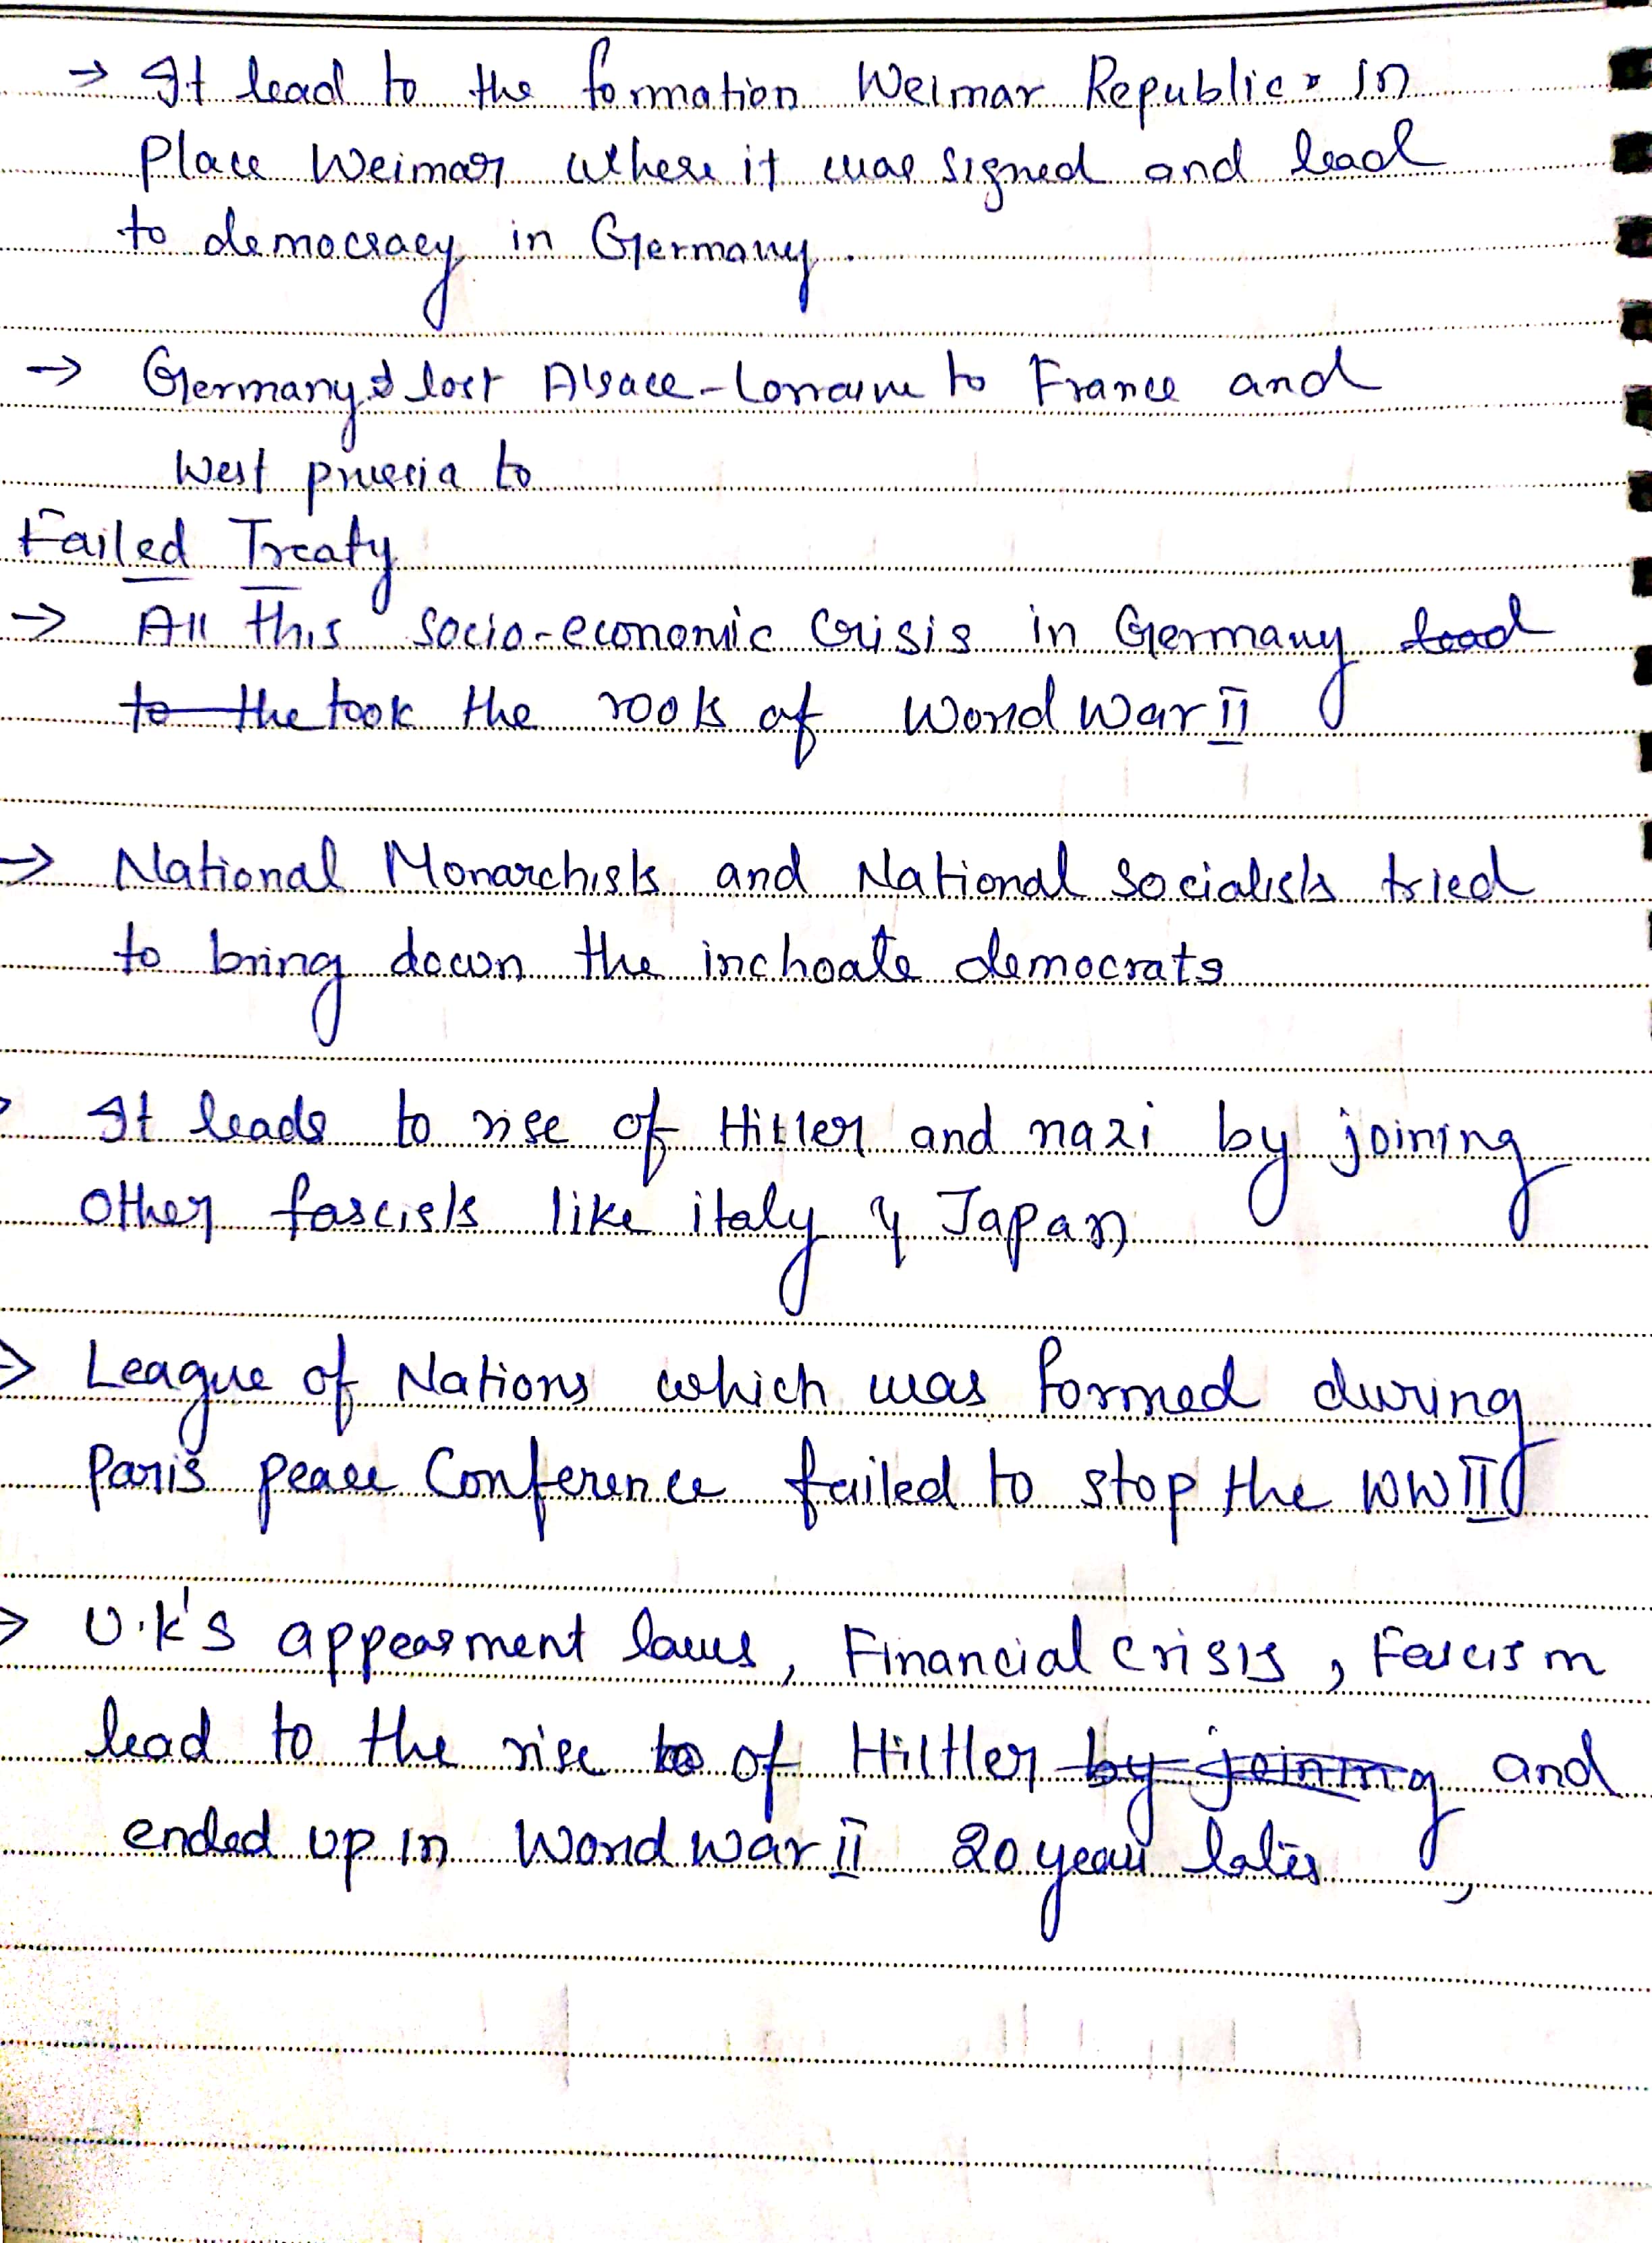 → It lead to the formation Weimar Republic in
Place Weimar where it was signed and lead
to democracy in Germany.
→ Germany lost Alsace-Lorraine to France and
West prussia to
Failed Treaty
→ All this socio-economic Crisis in Germany lead
to the took the roots of World War II
→ National Monarchists and National Socialists tried
to bring down the inchoate democrats
It leads to rise of Hitler and nazi by joining
other fascists like italy & Japan
→ League of Nations which was formed during
Paris peace Conference failed to stop the WW II
→ U.K's appeasment laws, Financial Crisis, Fascism
lead to the rise to of Hiltler by joining and
ended up in World War II 20 years later,